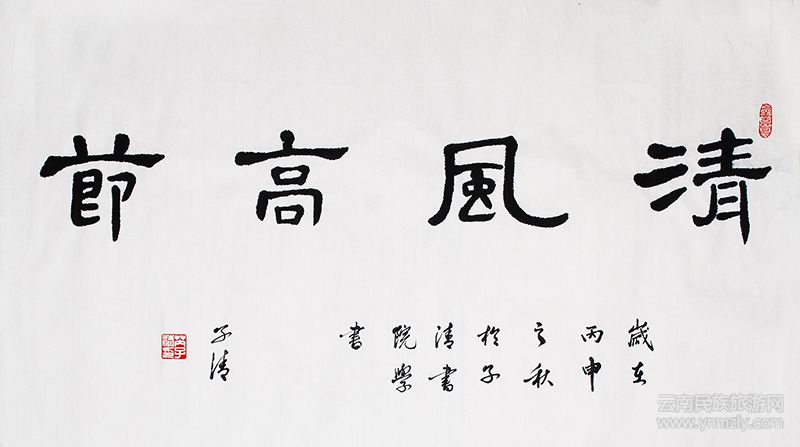 清風高節
歲在
丙申
之秋
於子
清書
院學
書
子清
云南民族旅游网
www.ynmzly.com